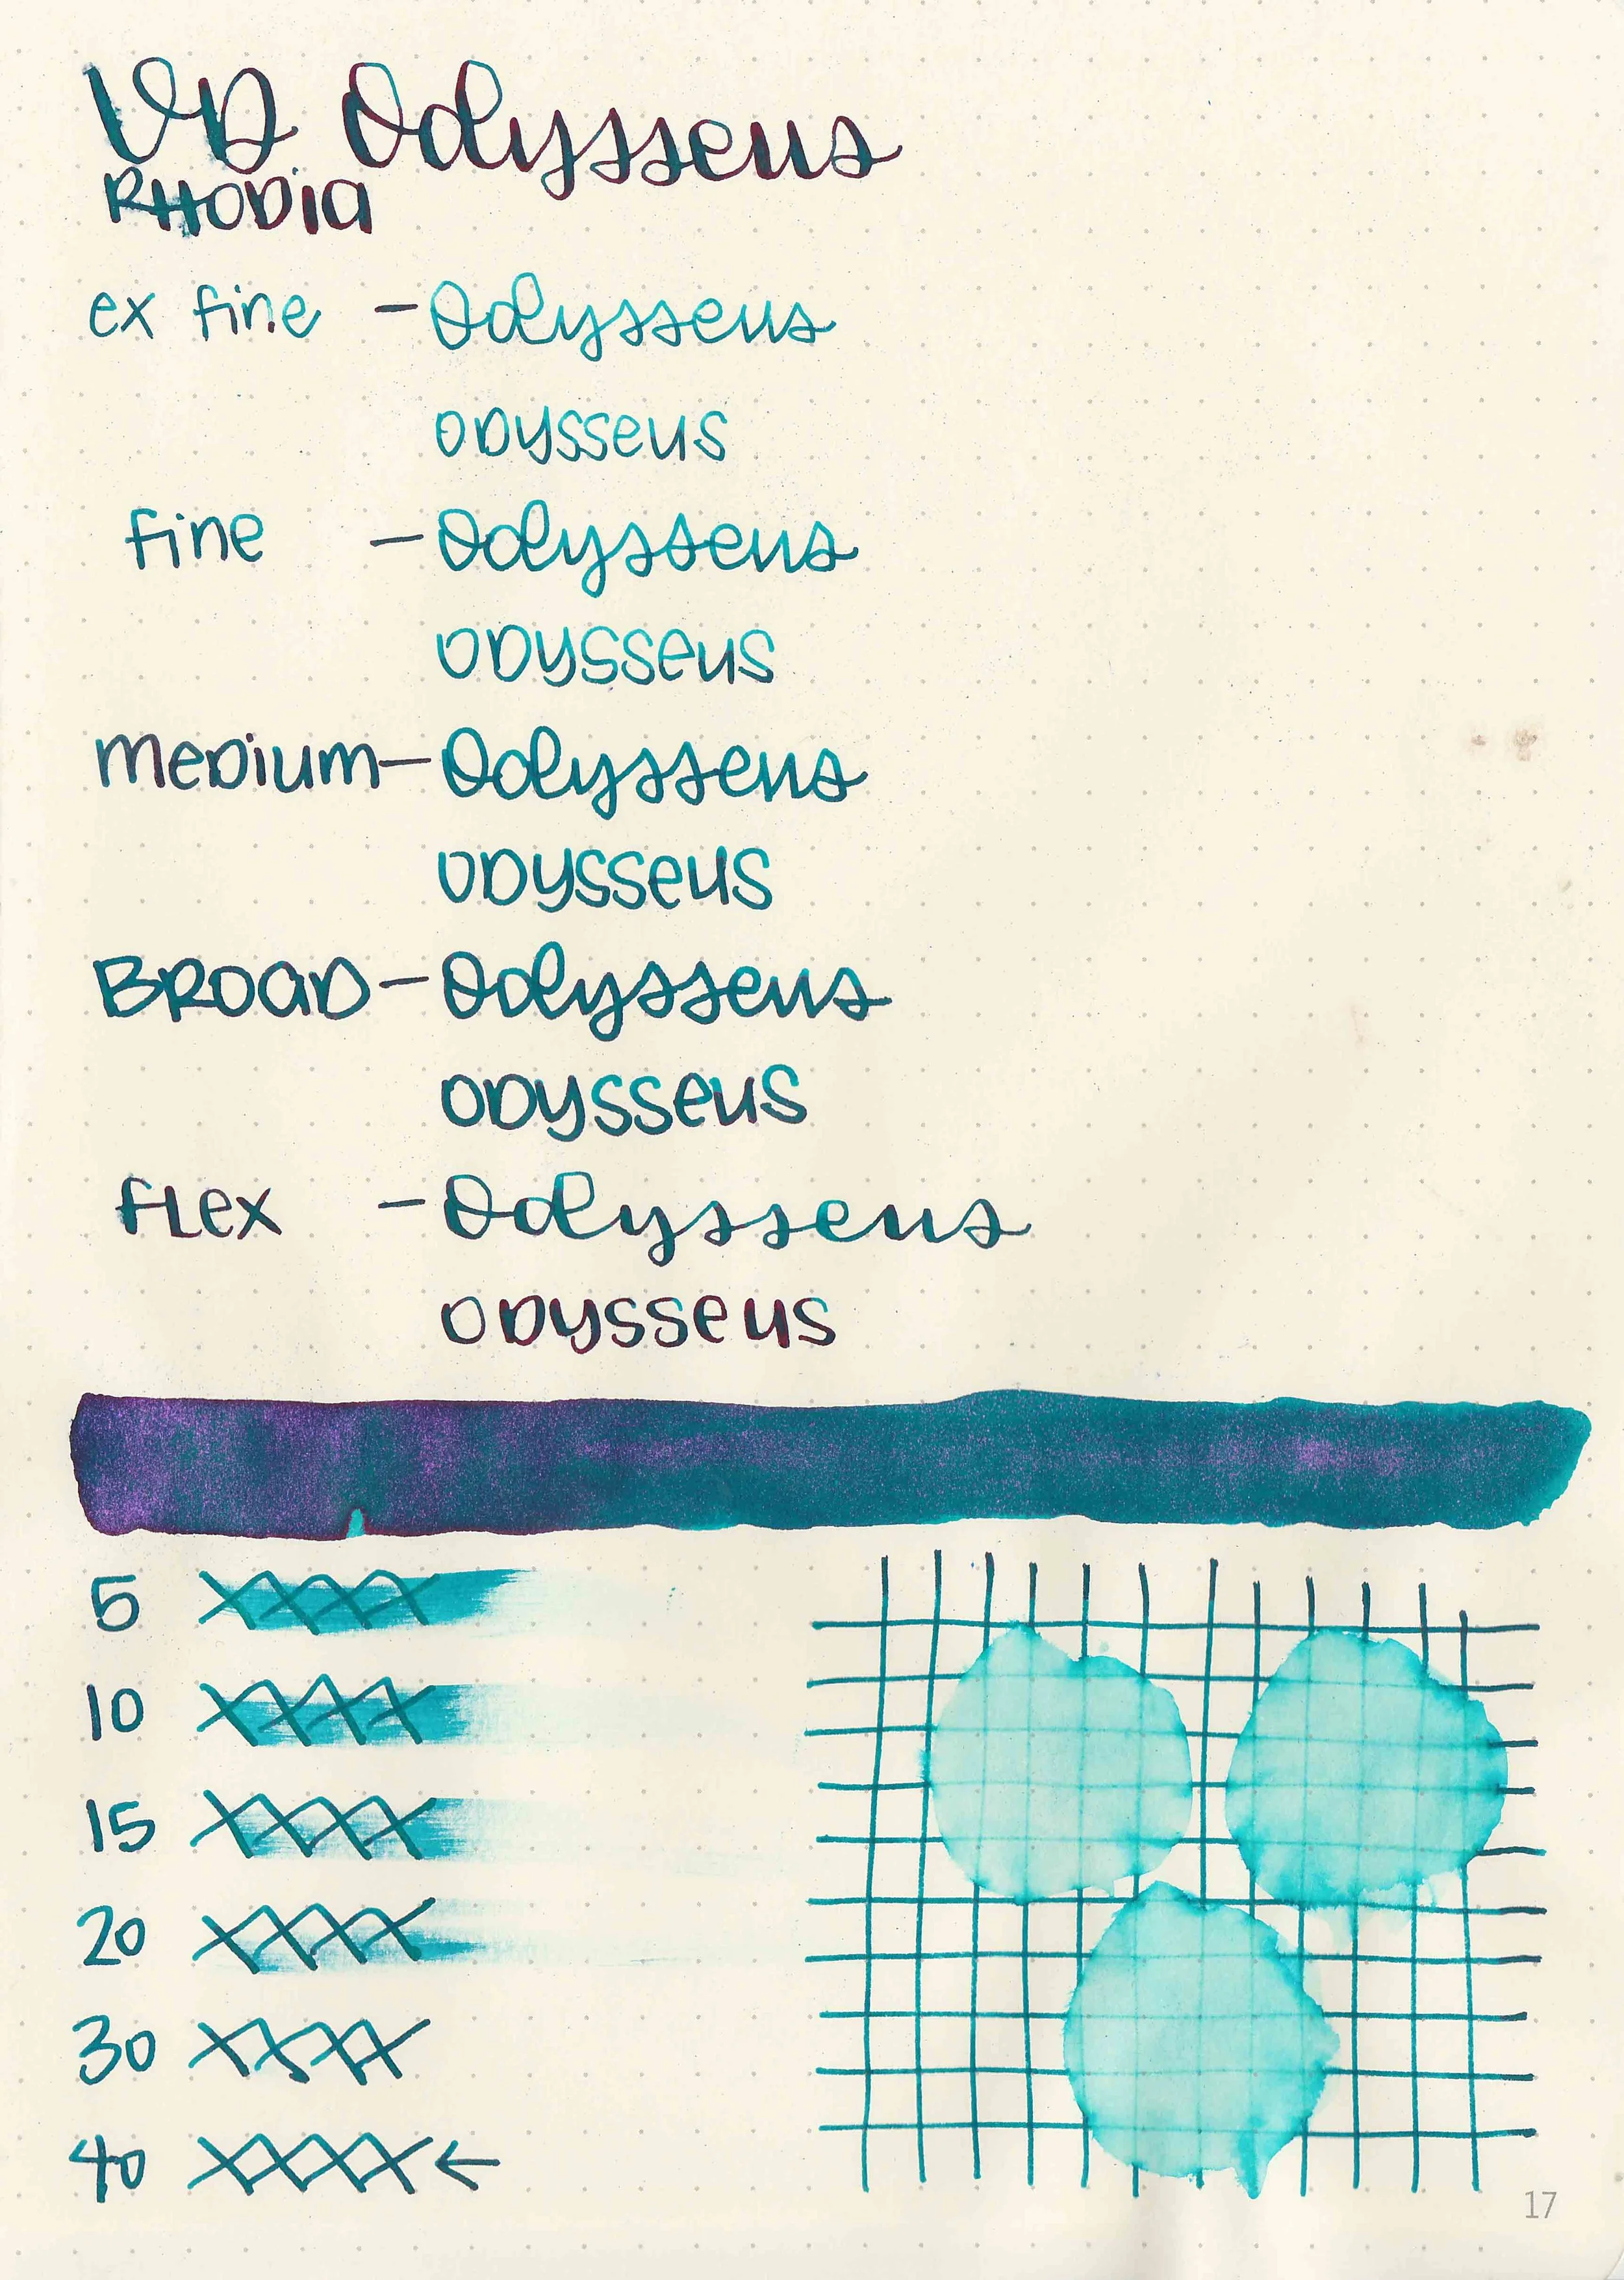 VD Odysseus
RHODIA
ex fine - Odysseus
ODYSSeus
fine - Odysseus
ODYSSeus
meDium - Odysseus
ODYSSeus
BROaD - Odysseus
ODYSSeus
fLex - Odysseus
ODYSSeus
5 XXXX
10 XXXX
15 XXXX
20 XXXX
30 XXXX
40 XXXX ←
17